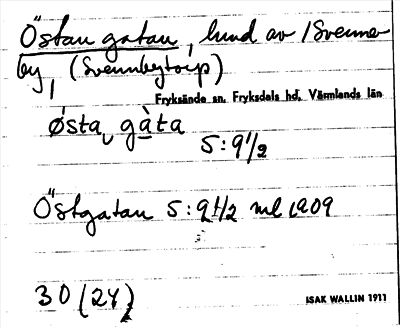 Östan gatan, lund av /Svenne
by, (Svennbytorp)
Fryksände sn, Fryksdals hd, Värmlands län
östa gàta
5:9 1/2
Östgatan 5:9 1/2 ml 1909
30 (24)
ISAK WALLIN 1911